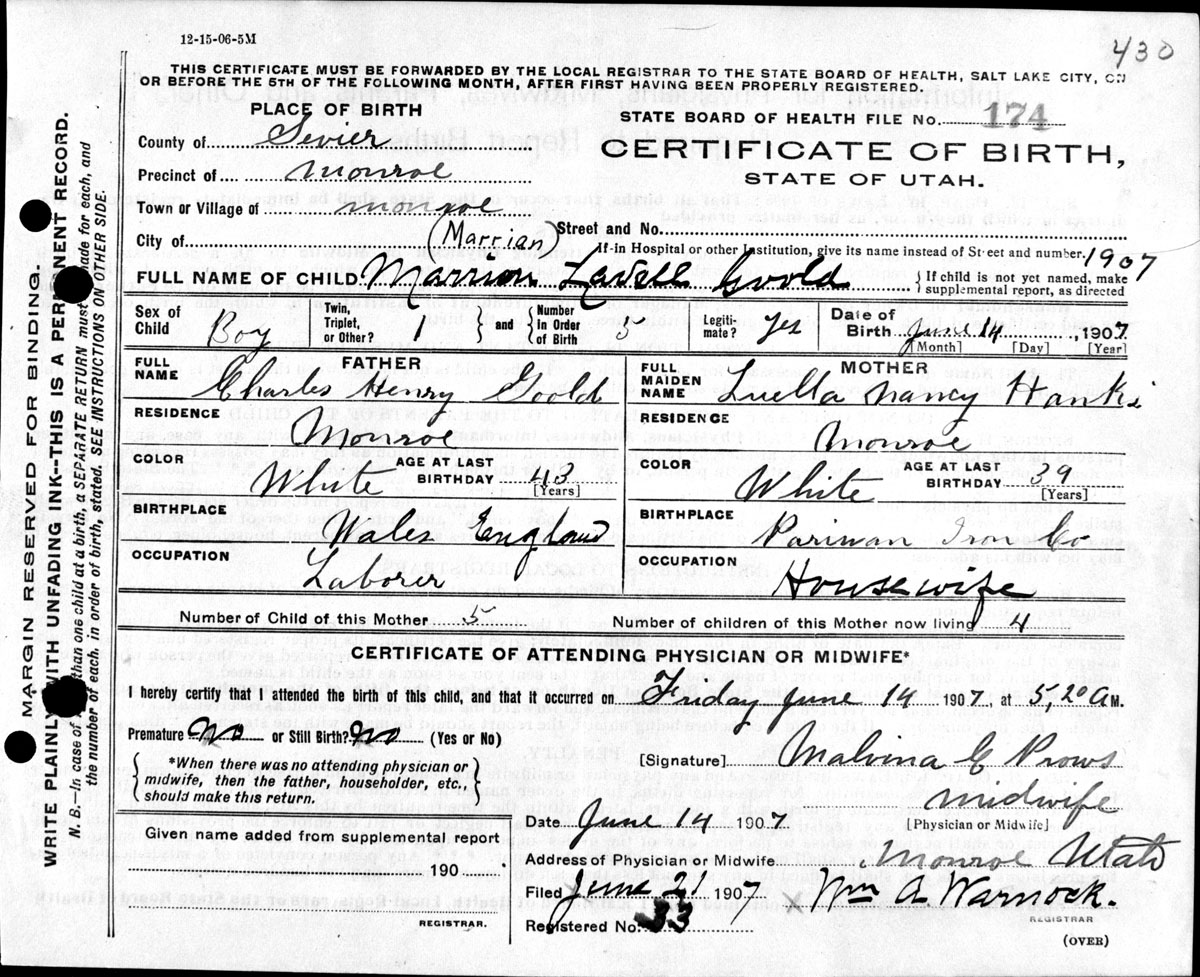 12-15-06-5M
430
THIS CERTIFICATE MUST BE FORWARDED BY THE LOCAL REGISTRAR TO THE STATE BOARD OF HEALTH, SALT LAKE CITY, ON
OR BEFORE THE 5TH OF THE FOLLOWING MONTH, AFTER FIRST HAVING BEEN PROPERLY REGISTERED.
PLACE OF BIRTH
STATE BOARD OF HEALTH FILE No. 174
County of Sevier
CERTIFICATE OF BIRTH,
Precinct of Monroe
STATE OF UTAH.
Town or Village of Monroe
City of
(Marrian)
Street and No.
If in Hospital or other Institution, give its name instead of Street and number. 1907
FULL NAME OF CHILD Marrion Lavell Goold
{ If child is not yet named, make
supplemental report, as directed
Sex of Child Boy
Twin, Triplet, or Other? 1 } and { Number In Order of Birth 5
Legiti-mate? Yes
Date of Birth June 14, 1907
[Month] [Day] [Year]
FATHER
FULL NAME Charles Henry Goold
RESIDENCE Monroe
COLOR White AGE AT LAST BIRTHDAY 43
[Years]
BIRTHPLACE Wales England
OCCUPATION Laborer
MOTHER
FULL MAIDEN NAME Luella Nancy Hanks
RESIDENCE Monroe
COLOR White AGE AT LAST BIRTHDAY 39
[Years]
BIRTHPLACE Parowan Iron Co
OCCUPATION Housewife
Number of Child of this Mother 5 Number of children of this Mother now living 4
CERTIFICATE OF ATTENDING PHYSICIAN OR MIDWIFE*
I hereby certify that I attended the birth of this child, and that it occurred on Friday June 14 1907, at 5,20 A M.
Premature No or Still Birth? No (Yes or No)
{ *When there was no attending physician or
midwife, then the father, householder, etc.,
should make this return. }
[Signature] Malvina G Prows
midwife
[Physician or Midwife]
Date June 14 1907
Given name added from supplemental report
190
REGISTRAR.
Address of Physician or Midwife Monroe Utah
Filed June 21 1907 x Wm A Warnock.
REGISTRAR
Registered No. 33
(OVER)
MARGIN RESERVED FOR BINDING.
WRITE PLAINLY WITH UNFADING INK--THIS IS A PERMANENT RECORD.
N. B.—In case of than one child at a birth, a SEPARATE RETURN must be made for each, and
the number of each, in order of birth, stated. SEE INSTRUCTIONS ON OTHER SIDE.